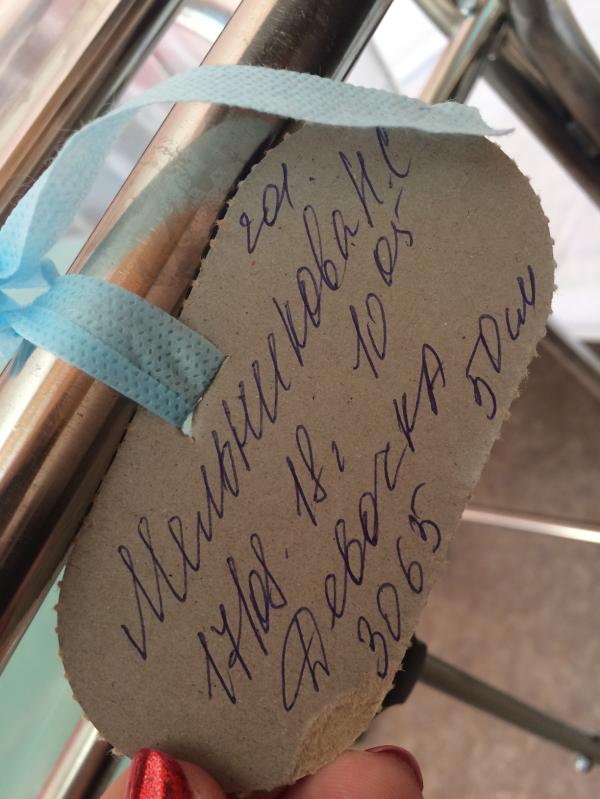 Мельникова Н.С
17/08. 18г 10 05
Девочка
3065 50см